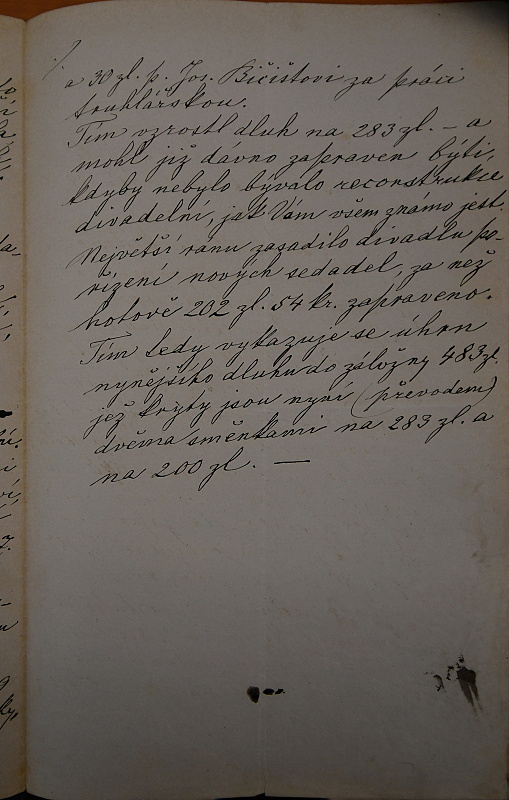 a 30 zl. p. Jos. Bičištovi za práci
truhlářskou.
Tím vzrostl dluh na 283 zl. – a
mohl již dávno zapraven býti,
kdyby nebylo bývalo reconstrukce
divadelní, jak Vám všem známo jest.
Největší ranu zasadilo divadlu po-
řízení nových sedadel, za než
hotově 202 zl. 54 kr. zapraveno.
Tím tedy vykazuje se úhrn
nynějšího dluhu do záložny 483 zl.
jež kryty jsou nyní (převodem)
dvěma směnkami na 283 zl. a
na 200 zl. —